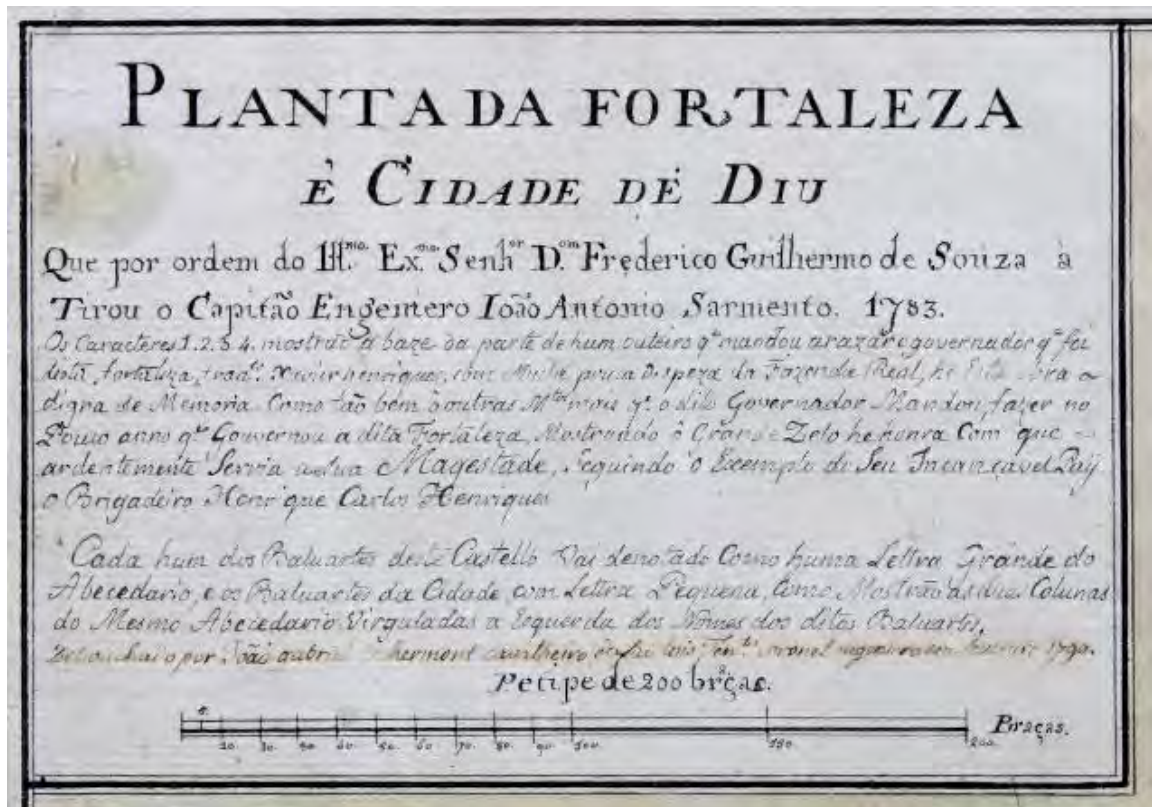 PLANTA DA FORTALEZA
È CIDADE DÉ DIU
Que por ordem do Ill.mo Ex.mo Senh.or D.om Frederico Guilhermo de Souza à
Tirou o Capitão Engeniero Ioão Antonio Sarmento. 1783.
Os Caracteres 1. 2. 3. 4. mostrão a baze da parte de hum outeiro q.e mandou arazar o governador q.e foi
desta fortaleza, henriques, com Muita pouca Despeza da Fazenda Real, he Esta obra
digna de Memoria Como tão bem ó outras M.tas mais q.e o dito Governador Mandou fazer no
Pouco anno q.e Gouvernou a dita Fortaleza, Mostrando ó Grande Zelo he honra Com que
ardentemente Servia a Sua Magestade, Seguindo o Exemplo de Seu Incançavel Pay
o Brigadeiro Henrique Carlos Henriques
Cada hum dos Baluartes deste Castello Vai denotado Como huma Lettra Grande do
Abecedario, e os Baluartes da Cidade com Lettra Pequena, como Mostrão as duas Colunas
do Mesmo Abecedario Virguladas a Esquerda dos Nomes dos ditos Baluartes,
por João 1790.
Petipe de 200 braças.
5. 20. 30. 40. 60. 50. 60. 70. 80. 90. 100. 150. 200. Braças.